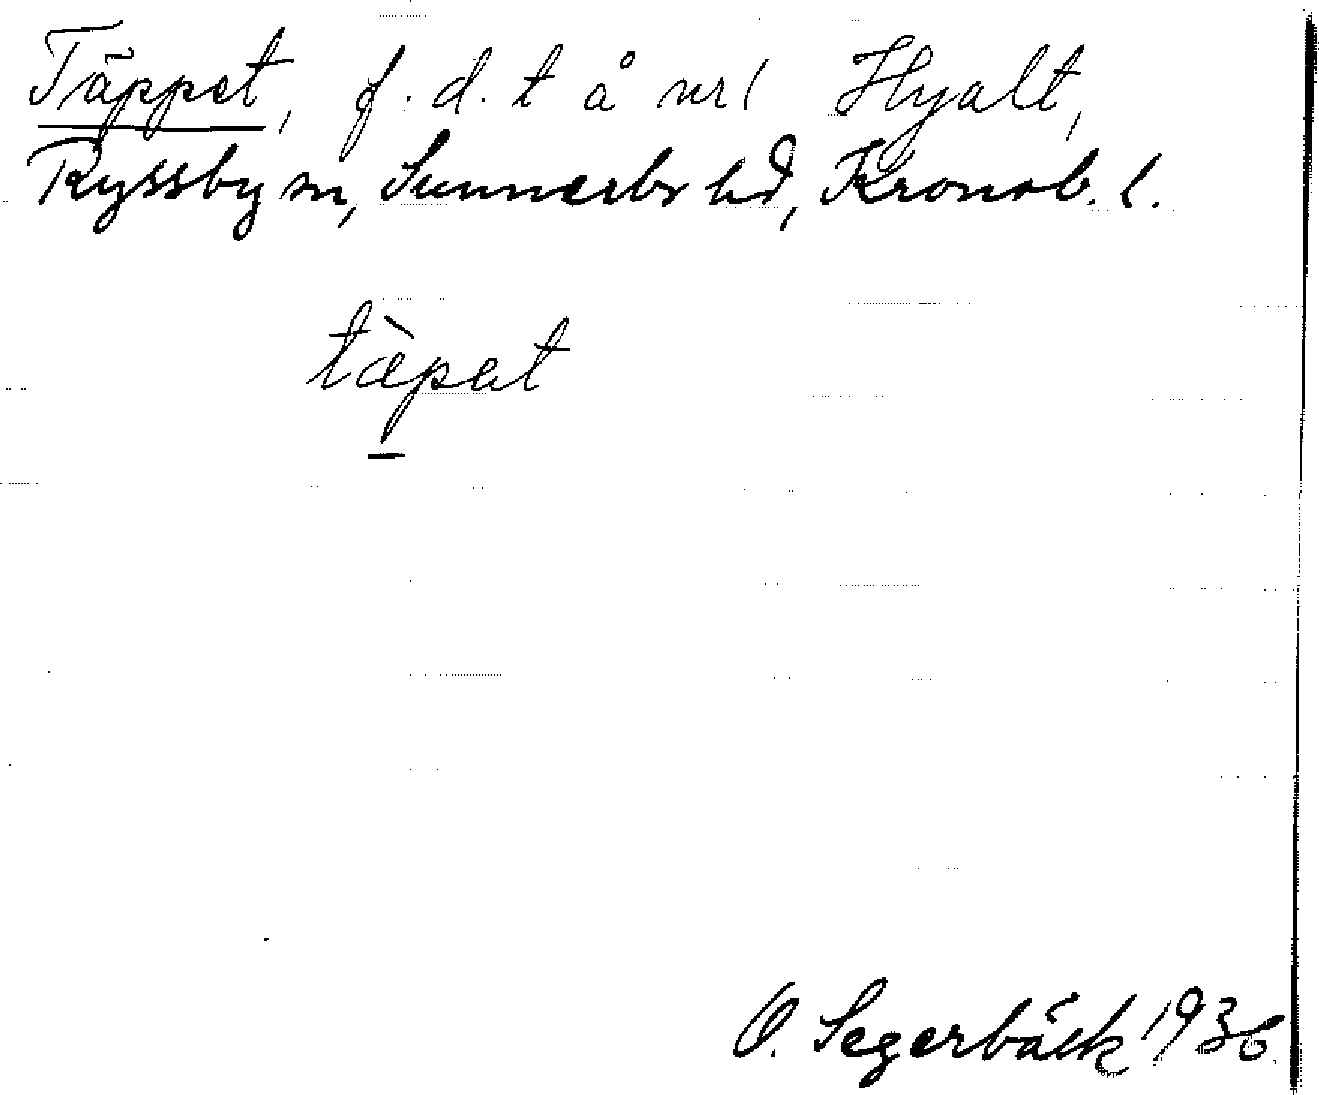 Täppet, f. d. t å nr 1 Hjalt,
Ryssby sn, Sunnerbo hd, Kronob. l.
tæ̀pət
O. Segerbäck 1936